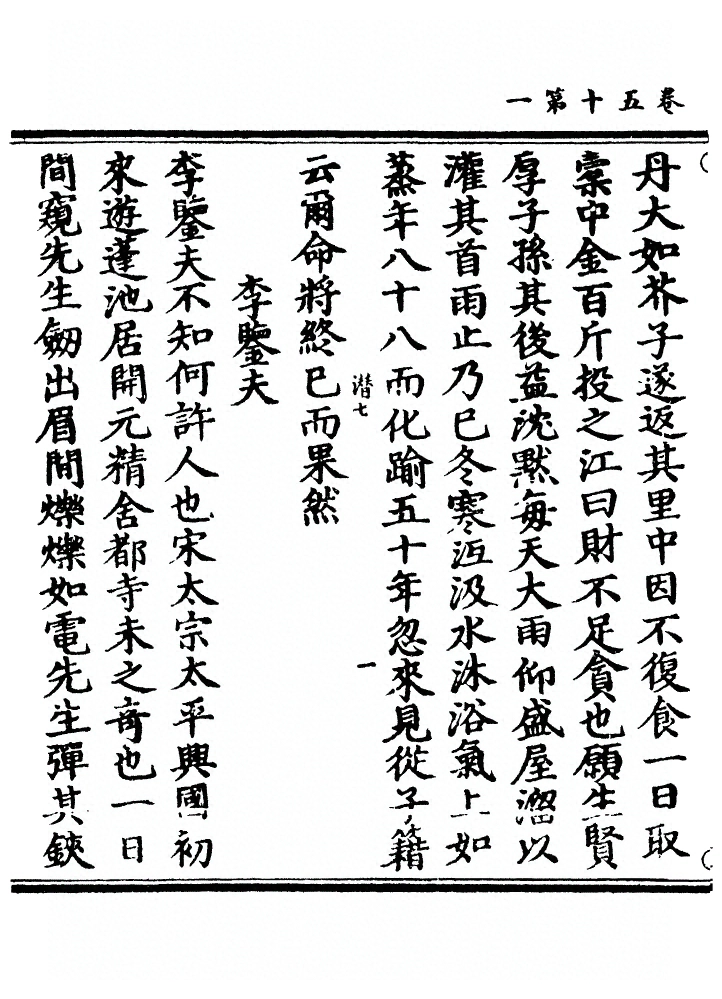 卷五十第一
丹大如芥子遂返其里中因不復食一日取
橐中金百斤投之江曰財不足貪也願生賢
厚子孫其後益沈默每天大雨仰盛屋溜以
灌其首雨止乃已冬寒沍汲水沐浴氣上如
蒸年八十八而化踰五十年忽來見從子籍
潜七
一
云爾命將終已而果然
李鑒夫
李鑒夫不知何許人也宋太宗太平興國初
來遊蓬池居開元精舍都寺未之奇也一日
間窺先生劒出眉間爍爍如電先生彈其鋏